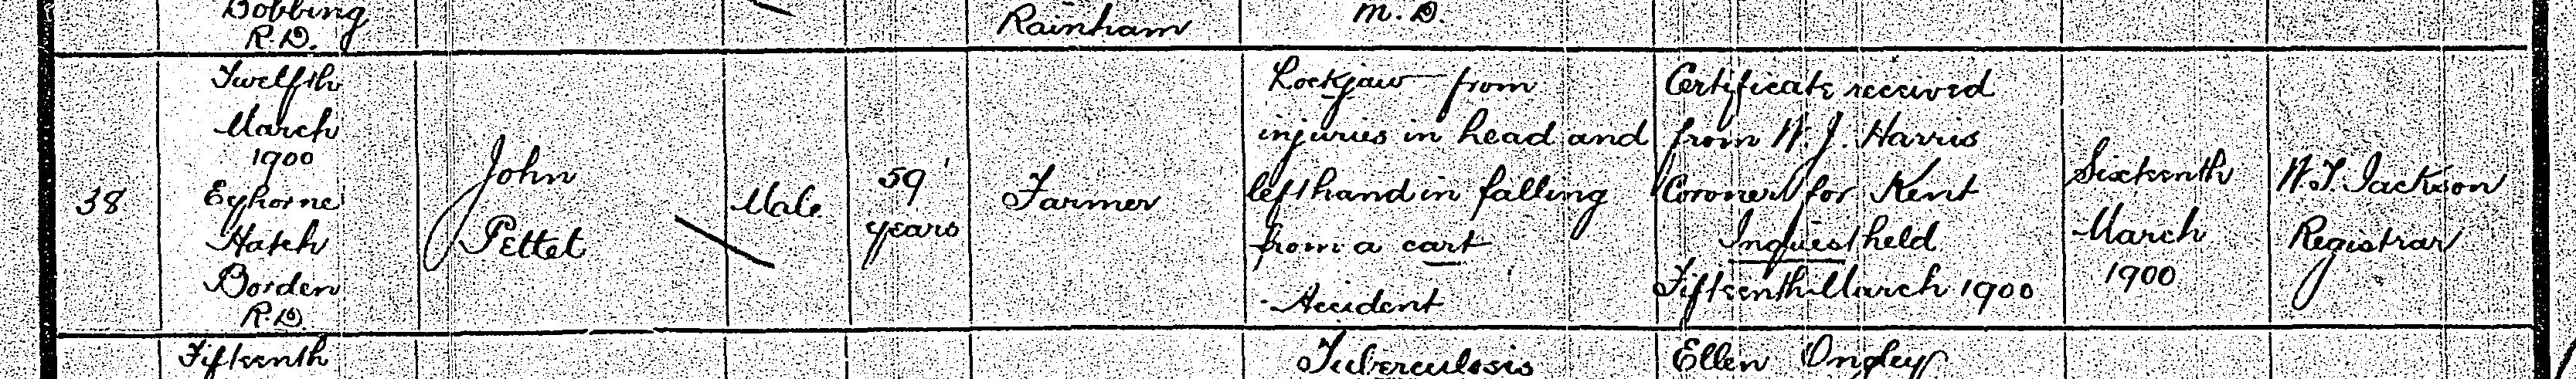 Bobbing
R.D.
Rainham
M.D.
38
Twelfth
March
1900
Eyhorne
Hatch
Borden
R.D.
John
Pettet
Male
59
years
Farmer
Lockjaw from
injuries in head and
left hand in falling
from a cart
Accident
Certificate received
from W. J. Harris
Coroner for Kent
Inquest held
Fifteenth March 1900
Sixteenth
March
1900
W.T. Jackson
Registrar
Fifteenth
Tuberculosis
Ellen Ongley